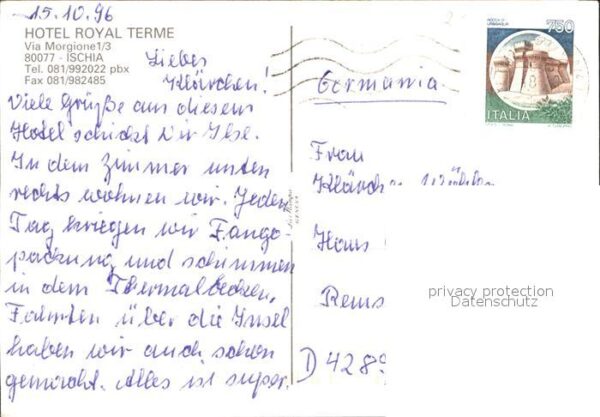 15.10.96
HOTEL ROYAL TERME
Via Morgione1/3
80077 - ISCHIA
Tel. 081/992022 pbx
Fax 081/982485
Liebes
Klärchen!
Viele Grüße aus diesem
Hotel schickt Dir Ilse.
In dem Zimmer unten
rechts wohnen wir. Jeden
Tag kriegen wir Fango
packung und schimmen
in dem Thermalbecken,
Fahrten über die Insel
haben wir auch schon
gemacht. Alles ist super.
750
ITALIA
Germania
Frau
Haus
Rems
D 4289
privacy protection
Datenschutz